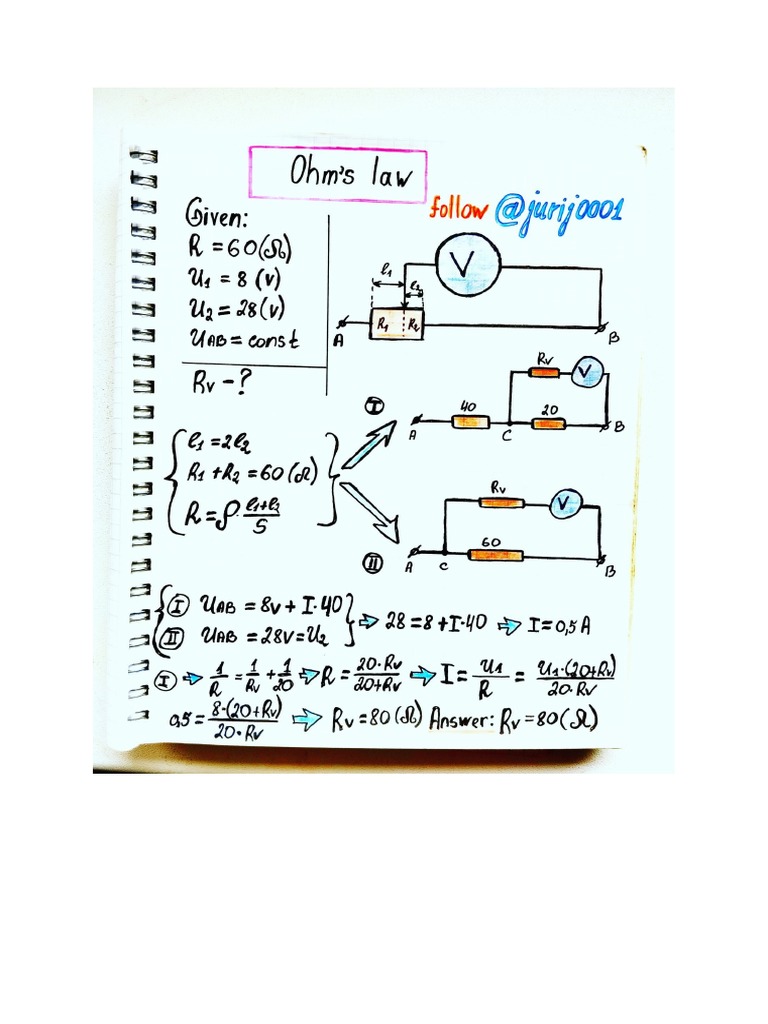 Ohm's law
follow @jurij0001
Given:
R = 60(Ω)
U1 = 8 (v)
U2 = 28(v)
UAB = const
Rv - ?
l1
l2
V
R1
R2
A
B
Rv
V
I
40
20
A
C
B
l1 = 2l2
R1 + R2 = 60(Ω)
R = ρ · (l1+l2)/S
Rv
V
60
II
A
C
B
I UAB = 8v + I·40
II UAB = 28v = U2
⇒ 28 = 8 + I·40 ⇒ I = 0,5 A
I ⇒ 1/R = 1/Rv + 1/20 ⇒ R = 20·Rv/20+Rv ⇒ I = U1/R = U1·(20+Rv)/20·Rv
0,5 = 8·(20+Rv)/20·Rv ⇒ Rv = 80(Ω) Answer: Rv = 80(Ω)